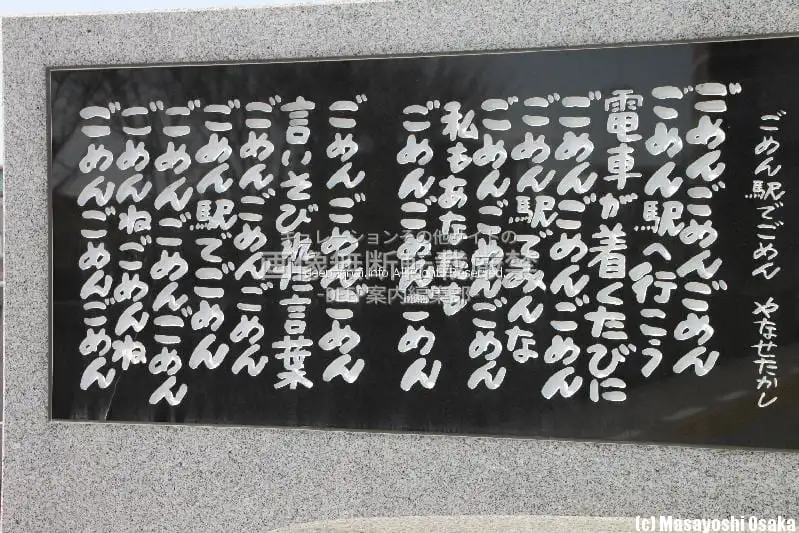 ごめん駅でごめん やなせたかし
ごめんごめんごめん
ごめん駅へ行こう
電車が着くたびに
ごめんごめんごめん
ごめん駅でみんな
ごめんごめんごめん
私もあな
ごめんごめんごめん
ごめんごめんごめん
言いそびれた言葉
ごめんごめんごめん
ごめん駅でごめん
ごめんごめんごめん
ごめんねごめんね
ごめんごめんごめん
(c) Masayoshi Osaka